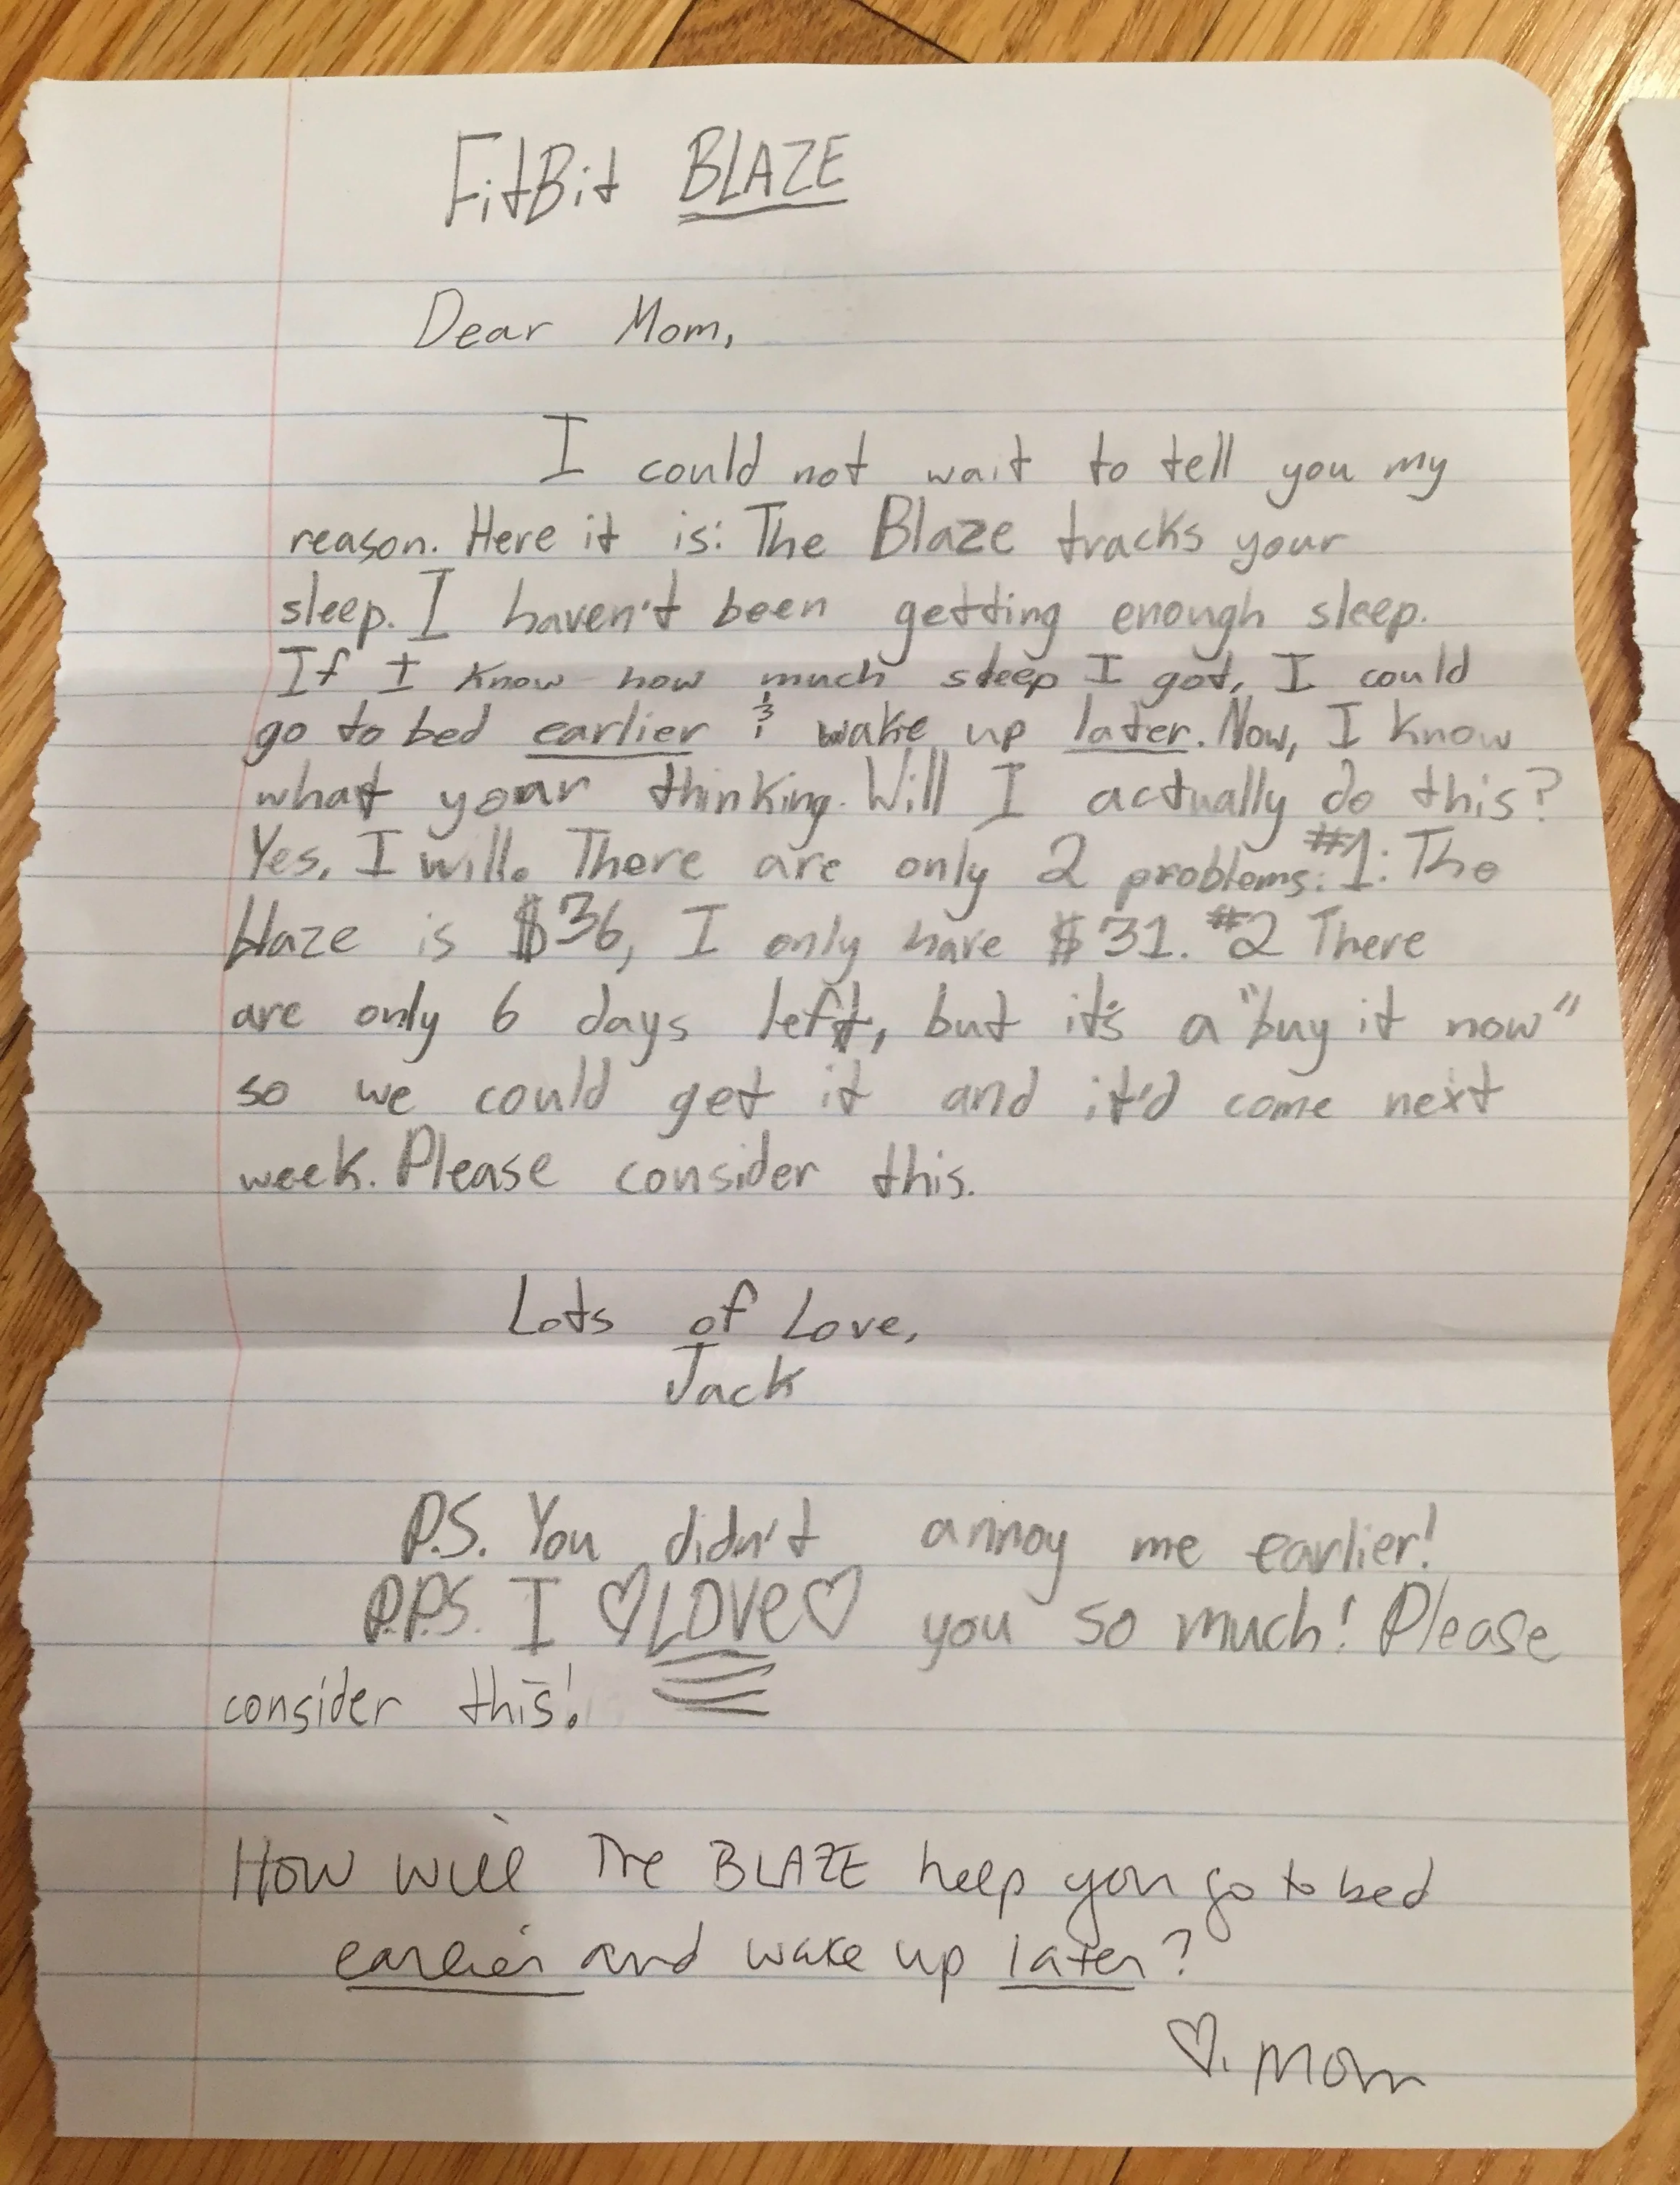 FitBit BLAZE
Dear Mom,
I could not wait to tell you my
reason. Here it is: The Blaze tracks your
sleep. I haven't been getting enough sleep.
If I know how much sleep I got, I could
go to bed earlier & wake up later. Now, I know
what your thinking. Will I actually do this?
Yes, I will. There are only 2 problems: #1: The
blaze is $36, I only have $31. #2 There
are only 6 days left, but it's a "buy it now"
so we could get it and it'd come next
week. Please consider this.
Lots of Love,
Jack
P.S. You didn't annoy me earlier!
P.P.S. I ♡LOVE♡ you so much! Please
consider this!
How will The BLAZE help you go to bed
earlier and wake up later?
♡. Mom